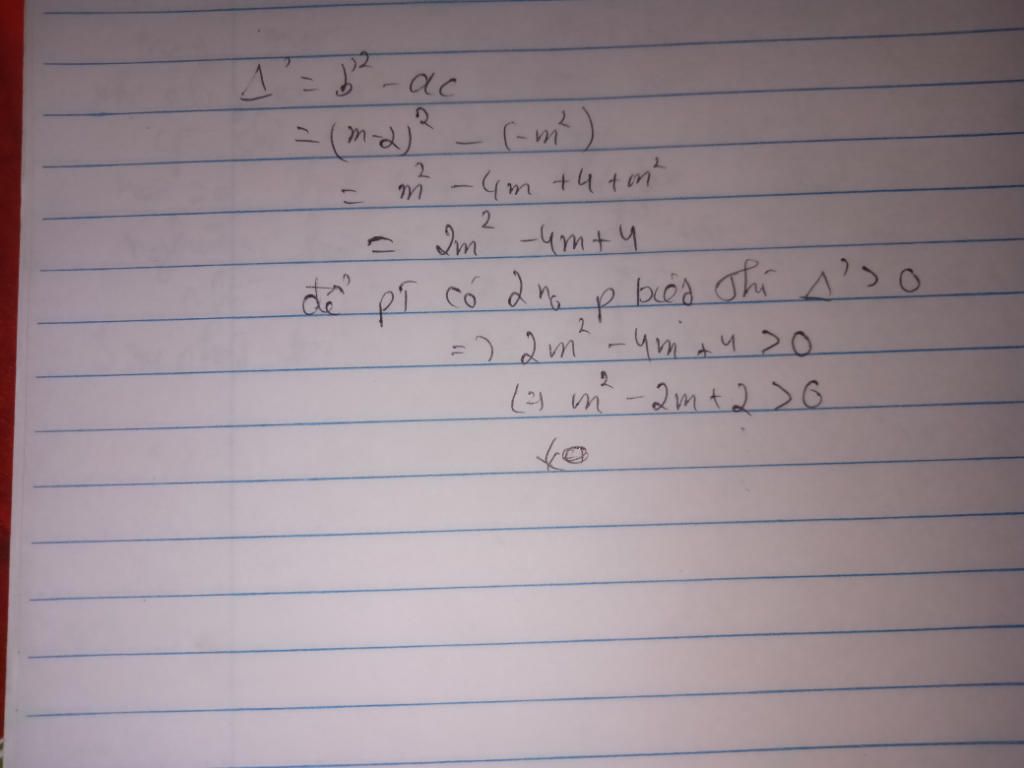 Δ' = b'² - ac
= (m-2)² - (-m²)
= m² - 4m + 4 + m²
= 2m² - 4m + 4
để pt có 2 no p biệt thì Δ' > 0
=> 2m² - 4m + 4 > 0
(=) m² - 2m + 2 > 0